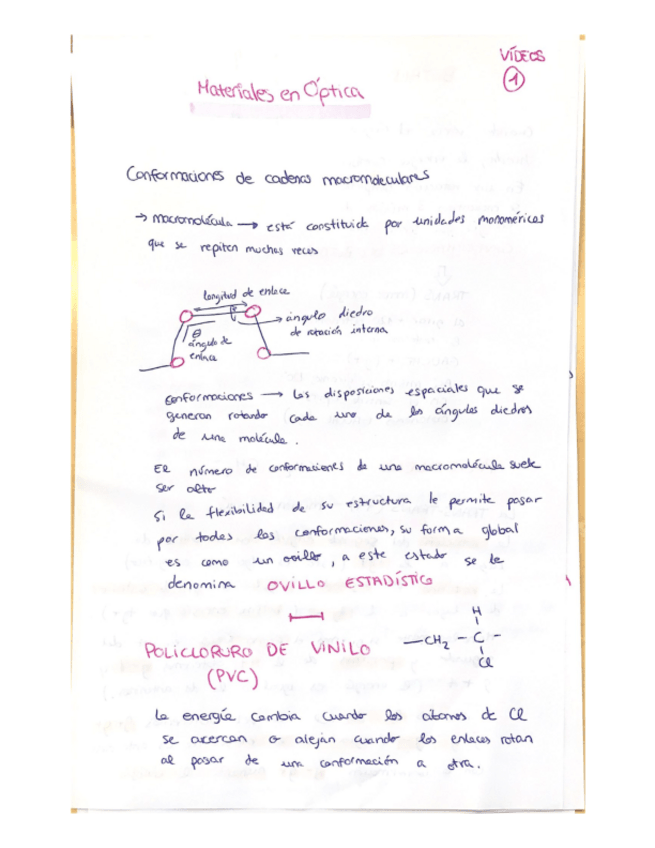 VÍDEOS
1
Materiales en Óptica
Conformaciones de cadenas macromoleculares
→ macromolécula → está constituida por unidades monoméricas
que se repiten muchas veces
longitud de enlace
θ
ángulo de
enlace
→ ángulo diedro
de rotación interna
conformaciones → las disposiciones espaciales que se
generan rotando cada uno de los ángulos diedros
de una molécula.
El número de conformaciones de una macromolécula suele
ser alto
Si la flexibilidad de su estructura le permite pasar
por todas las conformaciones, su forma global
es como un ovillo, a este estado se le
denomina OVILLO ESTADÍSTICO
POLICLORURO DE VINILO
(PVC)
H
—CH₂ - C -
Cl
La energía cambia cuando los átomos de Cl
se acercan o alejan cuando los enlaces rotan
al pasar de una conformación a otra.